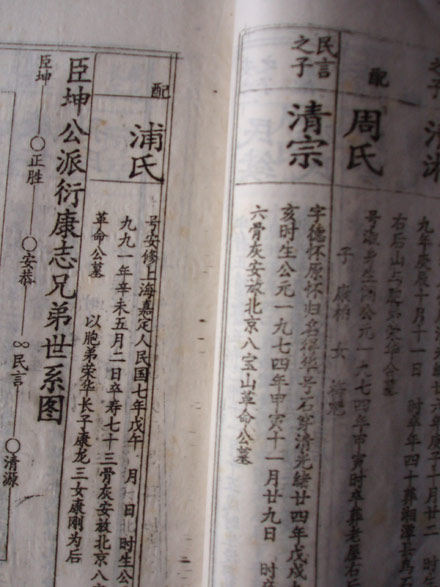 之子
九年庚辰十月十一日 时卒年四十葬湘潭县乌石
右后山
配
周氏
生 公元一九七四年甲寅时卒葬老屋右
子 康柏 女
民言
之子
清宗
字德怀原怀归名得华号石穿清光绪廿四年戊戌
亥时生公元一九七四年甲寅十一月廿九日 时
六骨灰安放北京八宝山革命公墓
配
浦氏
号安修上海嘉定人民国七年戊午 月 日 时生公
九九一年辛未五月二日卒寿七十三骨灰安放北京八
革命公墓 以胞弟荣华长子康龙 三女康刚为后
臣坤公派衍康志兄弟世系图
臣坤 ○正胜 ○安恭 ∞民言 ○清源